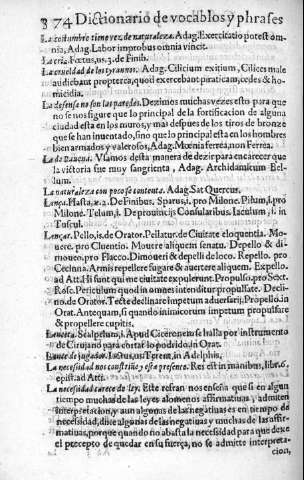 374 Diccionario de vocablos y phrases
La costumbre tiene vez de naturaleza. Adag. Exercitatio potest om-
nia, Adag. Labor improbus omnia vincit.
La cria. Fœtus, us. 3. de Finib.
La crueldad de los tyrannos. Adag. Cilicium exitium, Cilices male
audiebant propterea, quod exercebant piraticam, cedes & ho-
micidia.
La defensa no son las paredes. Dezimos muchas vezes esto para que
no se nos figure que lo principal de la fortificacion de alguna
ciudad esta en los muros, y mas despues de los tiros de bronze
que se han inuentado, sino que lo principal esta en los hombres
bien armados y valerosos, Adag. Mœnia ferrea, non Ferrea.
Vsamos desta manera de dezir para encarecer que
la victoria fue muy sangrienta, Adag. Archidamicum Bel-
lum.
La naturaleza con poco se contenta. Adag. Sat Quercus.
Lança. Hasta, æ. 2. De Finibus. Sparus, i. pro Milone. Pilum, i. pro
Milone. Telum, i. De prouincijs Consularibus. Iaculum, i. in
Tuscul.
Lançar. Pello, is. de Orator. Pellatur de Ciuitate eloquentia. Mo-
uere. pro Cluentio. Mouere aliquem senatu. Depello & di-
moueo. pro Flacco. Dimoueri & depelli de loco. Repello. pro
Cecinna. Armis repellere fugare & auertere aliquem. Expello.
ad Att. Hi sunt qui me ciuitate expulerunt. Propulso. pro Sext.
Rosc. Periculum quod in omnes intenditur propulsate. Decli-
no. de Orator. Tecte declinare impetum aduersarij. Propello. in
Orat. Antequam, si quando inimicorum impetum propulsare
& propellere cupitis.
Lanceta. Scalpellum, i. Apud Ciceronem se halla por instrumento
de Cirujano para cortar lo podrido, in Orat.
Lance de jugador. Iactus, us. Terent. in Adelphis.
La necessidad nos constriñe, o esta presente. Res est in manibus, libr. 6.
epist. ad Atti.
La necessidad carece de ley. Este refran nos enseña que si en algun
tiempo muchas de las leyes a lo menos affirmatiuas, admiten
interpretacion, y aun algunas de las negatiuas es en tiempo de
necessidad, dixe algunas de las negatiuas y muchas de las affir-
matiuas, porque quando no abasta la necessidad para que dexe
el precepto de quedar en su fuerça, no se admitte interpreta-
cion,